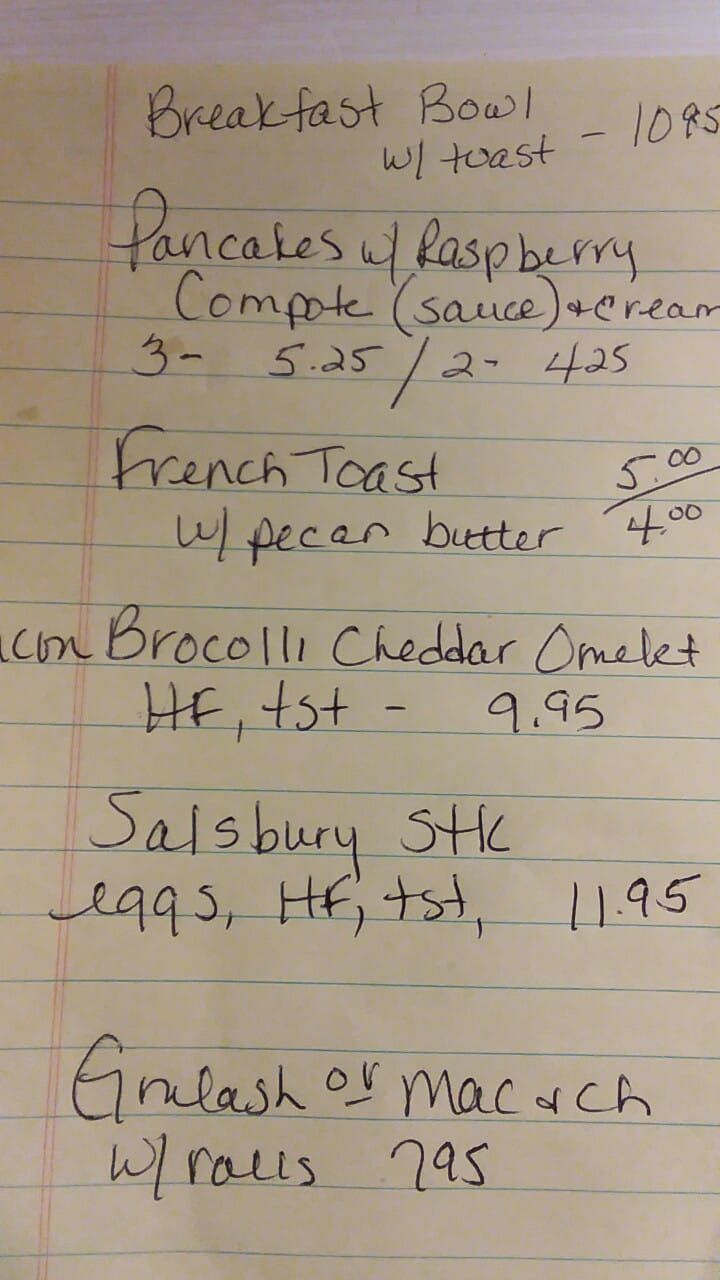 Breakfast Bowl
w/ toast - 1095
Pancakes w/ Raspberry
Compote (sauce) + cream
3- 5.25 / 2- 425
French Toast 5.00
w/ pecan butter 4.00
acon Brocolli Cheddar Omelet
HF, tst - 9.95
Salsbury Stk
eggs, HF, tst, 11.95
Gnulash or Mac & Ch
w/ rolls 795